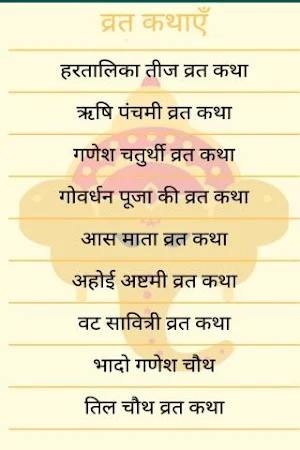 व्रत कथाएँ
हरतालिका तीज व्रत कथा
ऋषि पंचमी व्रत कथा
गणेश चतुर्थी व्रत कथा
गोवर्धन पूजा की व्रत कथा
आस माता व्रत कथा
अहोई अष्टमी व्रत कथा
वट सावित्री व्रत कथा
भादो गणेश चौथ
तिल चौथ व्रत कथा